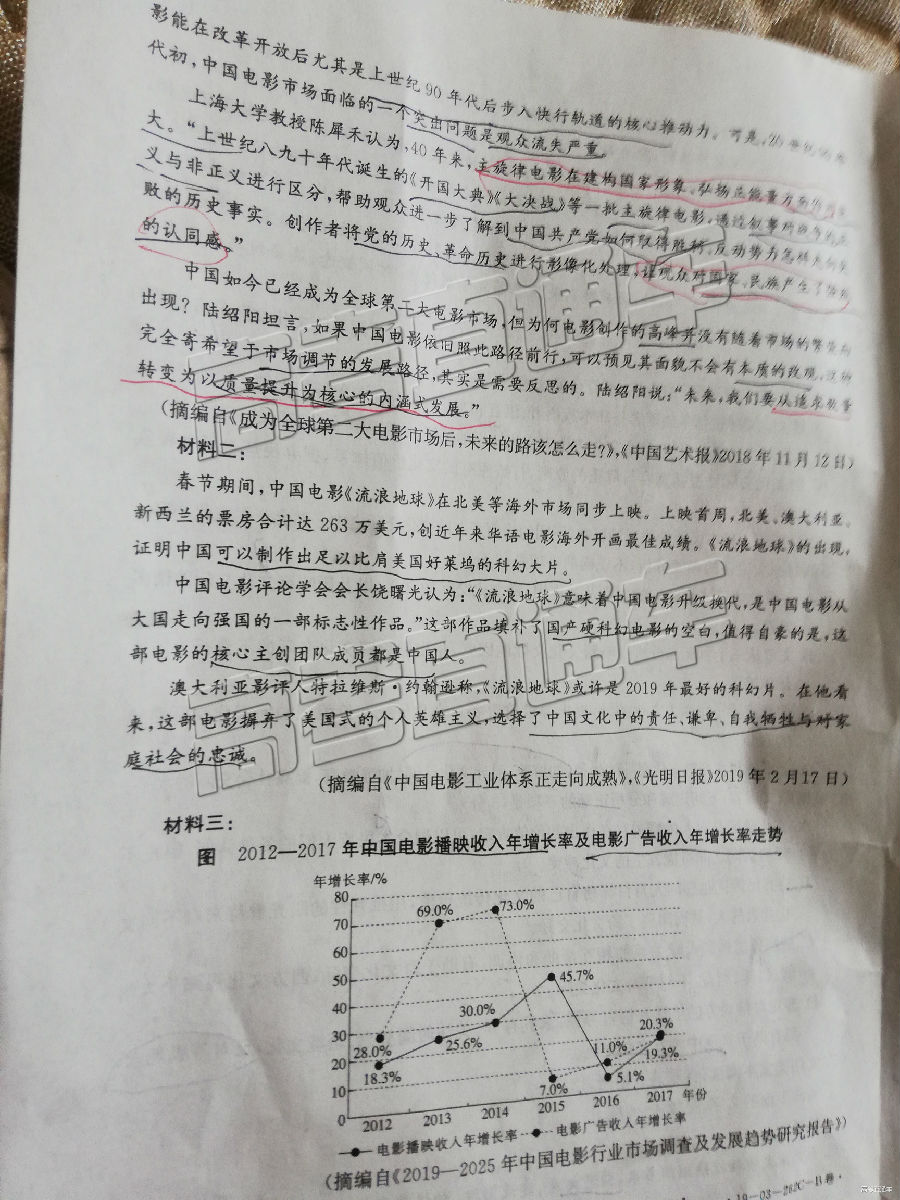 影能在改革开放后尤其是上世纪90年代后步入快行轨道的核心推动力。可是,80世纪
代初,中国电影市场面临的一个突出问题是观众流失严重。
上海大学教授陈犀禾认为,40年来,主旋律电影在建构国家形象、弘扬正能量方面
大。“上世纪八九十年代诞生的《开国大典》《大决战》等一批主旋律电影,通过叙事对战争的正
义与非正义进行区分,帮助观众进一步了解到中国共产党如何取得胜利、反动势力怎样走向失
败的历史事实。创作者将党的历史、革命历史进行影像化处理,让观众对国家、民族产生了
的认同感。”
中国如今已经成为全球第二大电影市场,但为何电影创作的高峰并没有随着市场的繁荣而
出现?陆绍阳坦言,如果中国电影依旧照此路径前行,可以预见其面貌不会有本质的改观,
完全寄希望于市场调节的发展路径,其实是需要反思的。陆绍阳说:“未来,我们要从追求数量
转变为以质量提升为核心的内涵式发展。”
(摘编自《成为全球第二大电影市场后,未来的路该怎么走?》,《中国艺术报》2018年11月12日)
材料二:
春节期间,中国电影《流浪地球》在北美等海外市场同步上映。上映首周,北美、澳大利亚、
新西兰的票房合计达263万美元,创近年来华语电影海外开画最佳成绩。《流浪地球》的出现,
证明中国可以制作出足以比肩美国好莱坞的科幻大片。
中国电影评论学会会长饶曙光认为:“《流浪地球》意味着中国电影升级换代,是中国电影从
大国走向强国的一部标志性作品。”这部作品填补了国产硬科幻电影的空白,值得自豪的是,这
部电影的核心主创团队成员都是中国人。
澳大利亚影评人特拉维斯·约翰逊称,《流浪地球》或许是2019年最好的科幻片。在他看
来,这部电影摒弃了美国式的个人英雄主义,选择了中国文化中的责任、谦卑、自我牺牲与对家
庭社会的忠诚。
(摘编自《中国电影工业体系正走向成熟》,《光明日报》2019年2月17日)
材料三:
图 2012—2017年中国电影播映收入年增长率及电影广告收入年增长率走势
年增长率/%
80
70
60
50
40
30
20
10
0
69.0%
73.0%
45.7%
30.0%
28.0%
25.6%
18.3%
7.0%
11.0%
5.1%
20.3%
19.3%
2012 2013 2014 2015 2016 2017 年份
电影播映收入年增长率 电影广告收入年增长率
(摘编自《2019—2025年中国电影行业市场调查及发展趋势研究报告》)
19-03-262C-B卷·
高考直通车
高考直通车